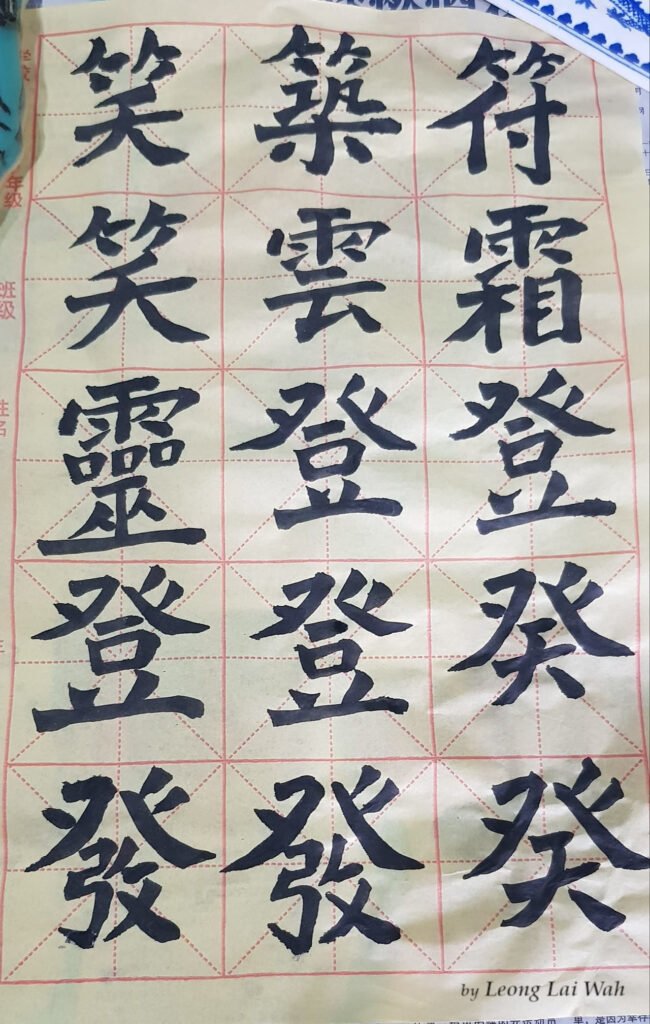 笑築符
笑雲霜
靈登登
登登癸
發發癸
年级
班级
by Leong Lai Wah